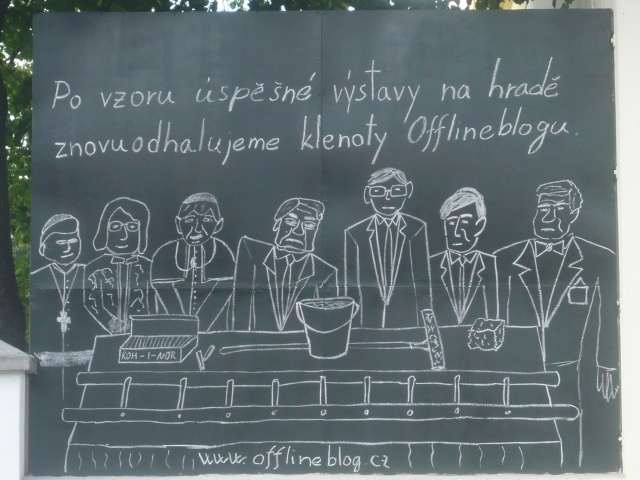 Po vzoru úspěšné výstavy na hradě
znovuodhalujeme klenoty Offlineblogu.
KOH-I-NOR
www.offlineblog.cz